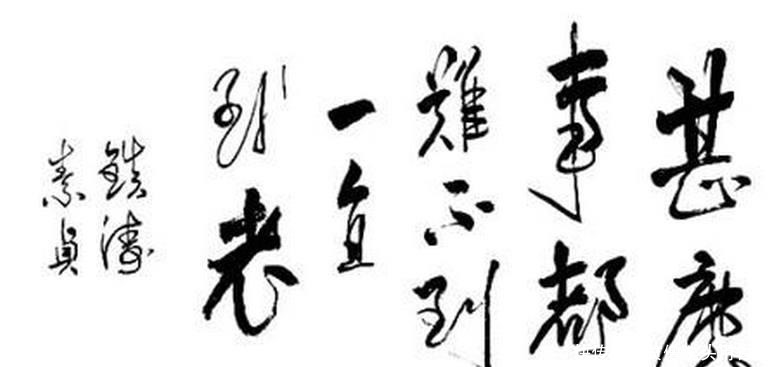 甚麼
事都
難不到
一直
到老
濤
素貞